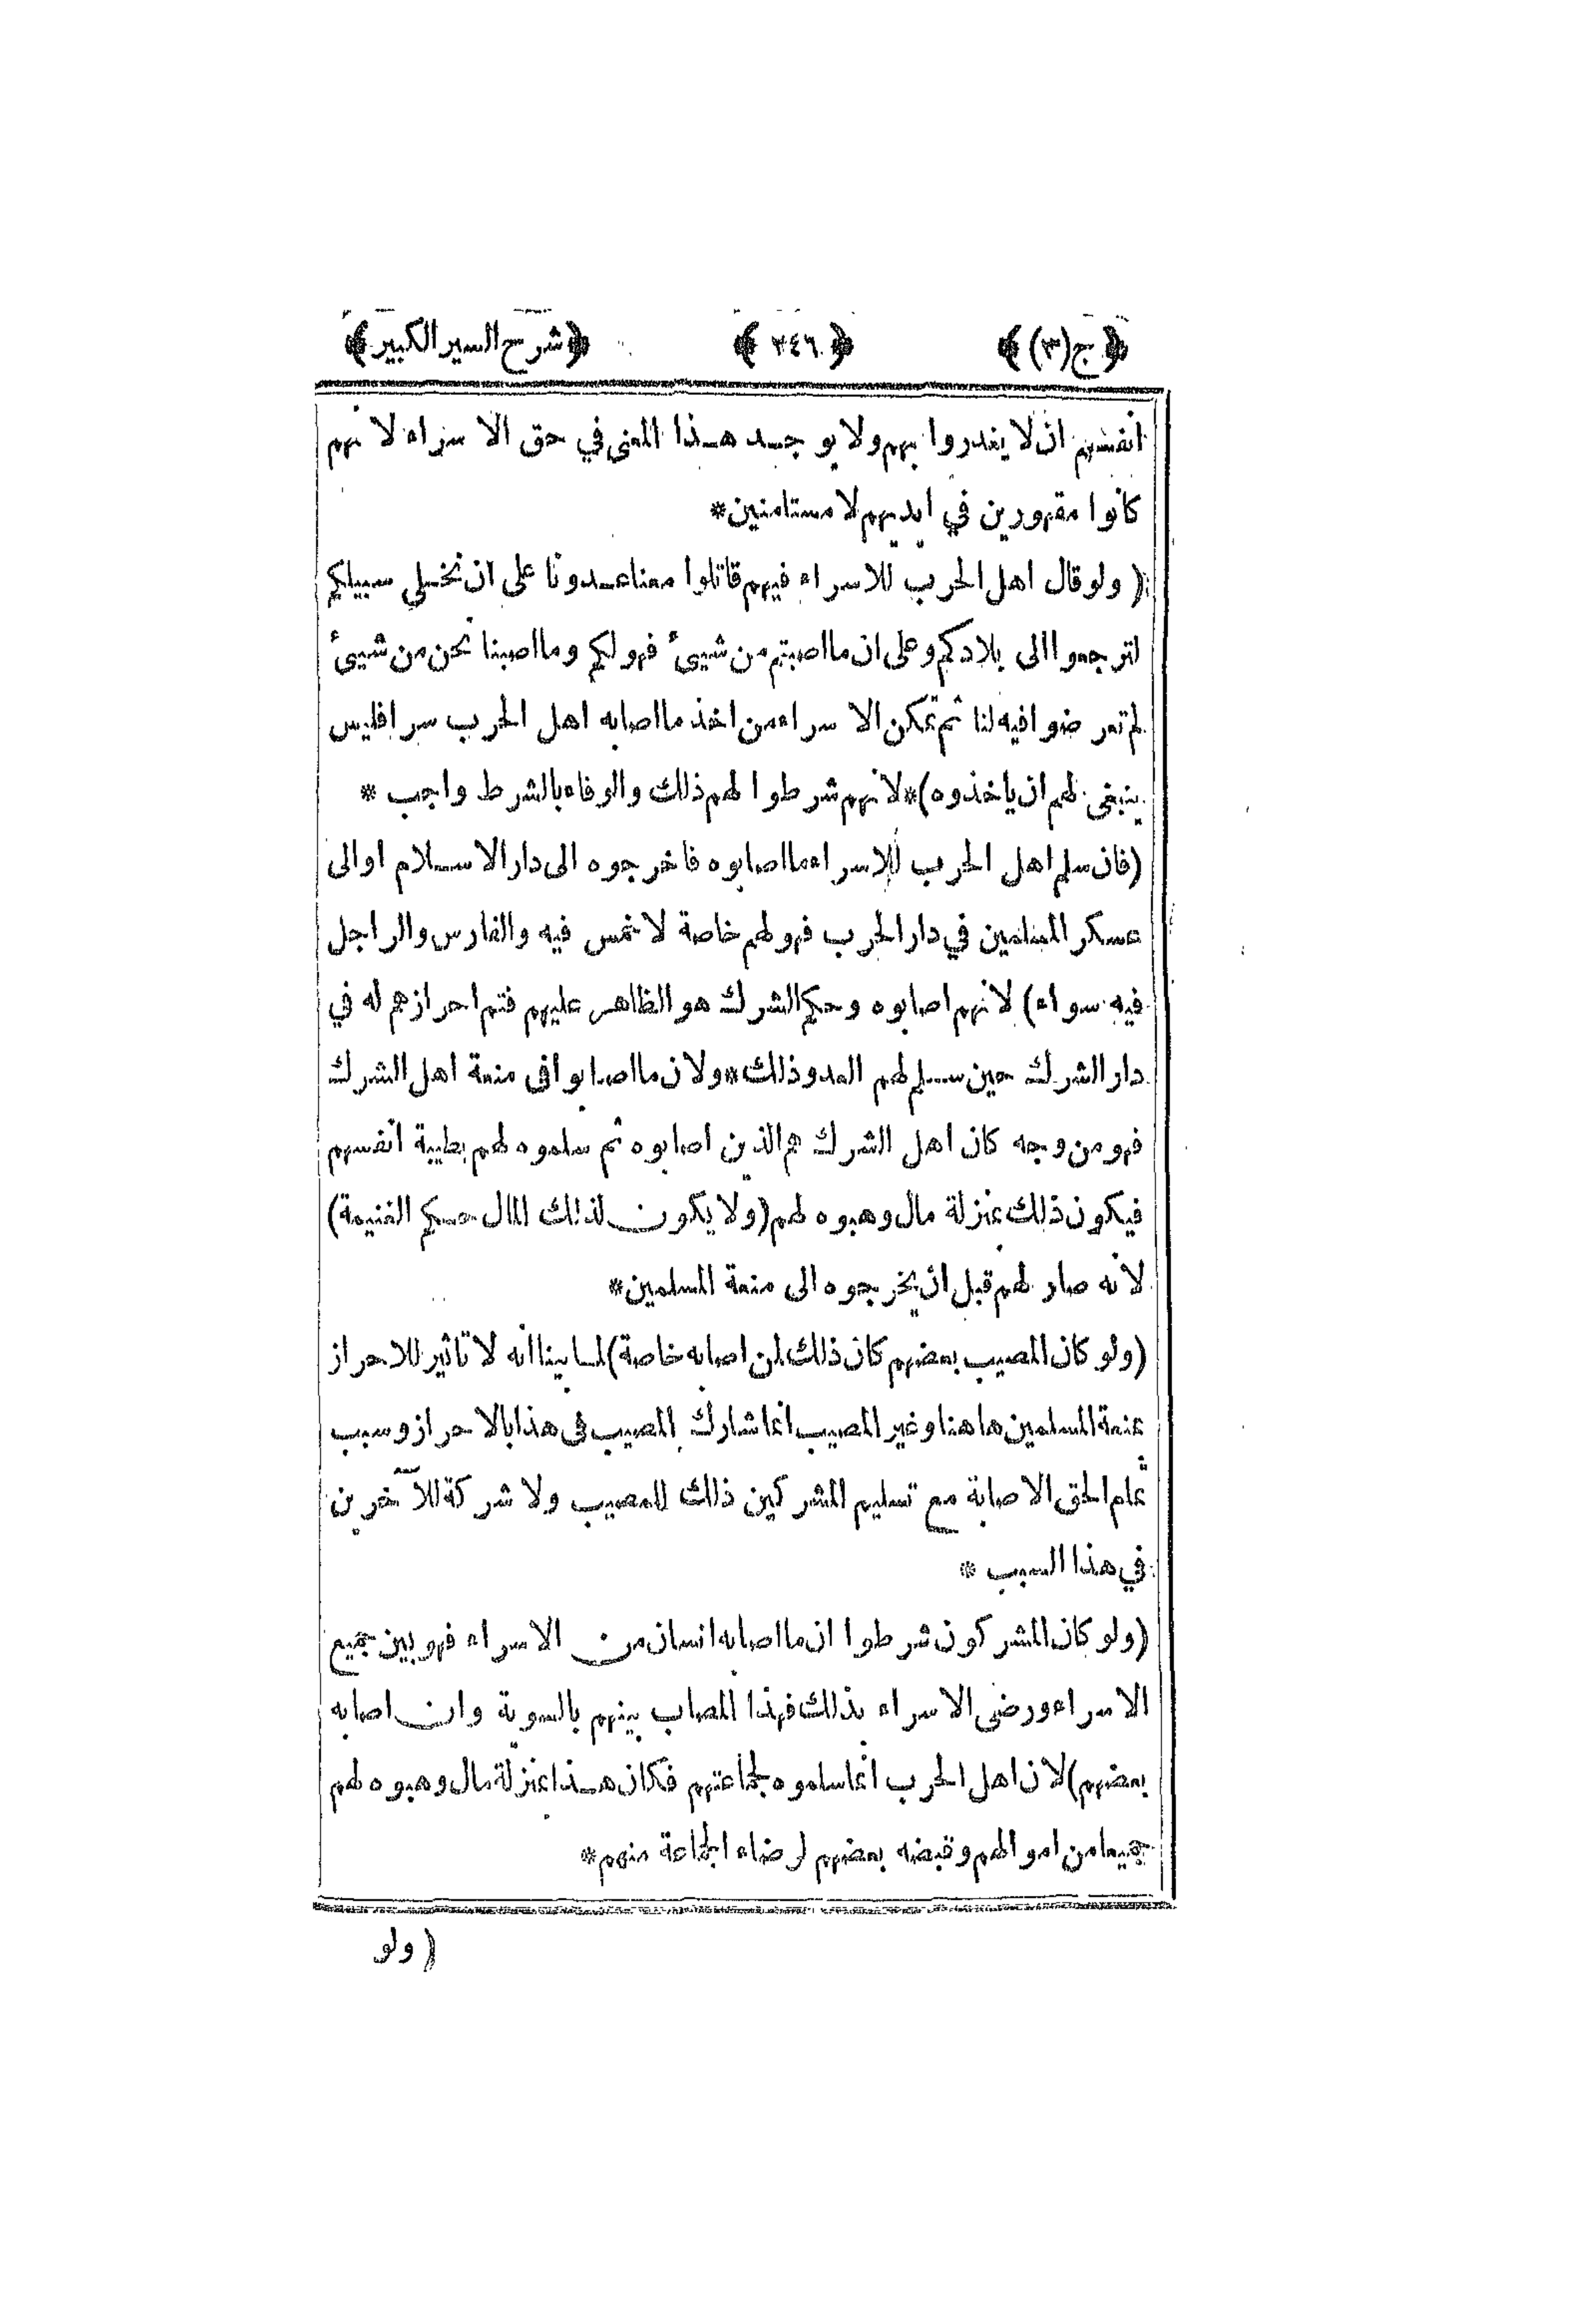 ﴿ج(٣)﴾ ﴿٢٤٦﴾ ﴿شرح السير الكبير﴾
انفسهم ان لا يغدروا بهم ولا يوجد هذا المعنى في حق الاسراء لانهم
كانوا مقهورين في ايديهم لا مستامنين*
(ولو قال اهل الحرب للاسراء فيهم قاتلوا معنا عدونا على ان نخلي سبيلكم
لترجعوا الى بلادكم وعلى ان ما اصبتم من شيئ فهو لكم وما اصبنا نحن من شيئ
لم تعرضوا فيه لنا ثم تمكن الاسراء من اخذ ما اصابه اهل الحرب سرا فليس
ينبغى لهم ان ياخذوه)*لانهم شرطوا لهم ذلك والوفاء بالشرط واجب*
(فان سلم اهل الحرب للاسراء ما اصابوه فاخرجوه الى دار الاسلام او الى
عسكر المسلمين في دار الحرب فهو لهم خاصة لا خمس فيه والفارس والراجل
فيه سواء) لانهم اصابوه وحكم الشرك هو الظاهر عليهم فتم احرازهم له في
دار الشرك حين سلم لهم العدو ذلك*ولان ما اصابوا فى منعة اهل الشرك
فهو من وجه كان اهل الشرك هم الذين اصابوه ثم سلموه لهم بطيبة انفسهم
فيكون ذلك بمنزلة مال وهبوه لهم(ولا يكون لذلك المال حكم الغنيمة)
لانه صار لهم قبل ان يخرجوه الى منعة المسلمين*
(ولو كان المصيب بعضهم كان ذلك لمن اصابه خاصة)لما بينا انه لا تاثير للاحراز
بمنعة المسلمين هاهنا وغير المصيب انما شارك المصيب فى هذا بالاحراز وسبب
تمام الحق الاصابة مع تسليم المشركين ذلك للمصيب ولا شركة للآخرين
في هذا السبب*
(ولو كان المشركون شرطوا ان ما اصابه انسان من الاسراء فهو بين جميع
الاسراء ورضى الاسراء بذلك فهذا المصاب بينهم بالسوية وان اصابه
بعضهم)لان اهل الحرب انما سلموه لجماعتهم فكان هذا بمنزلة مال وهبوه لهم
جميعا من اموالهم وقبضه بعضهم لرضاء الجماعة منهم*
(ولو